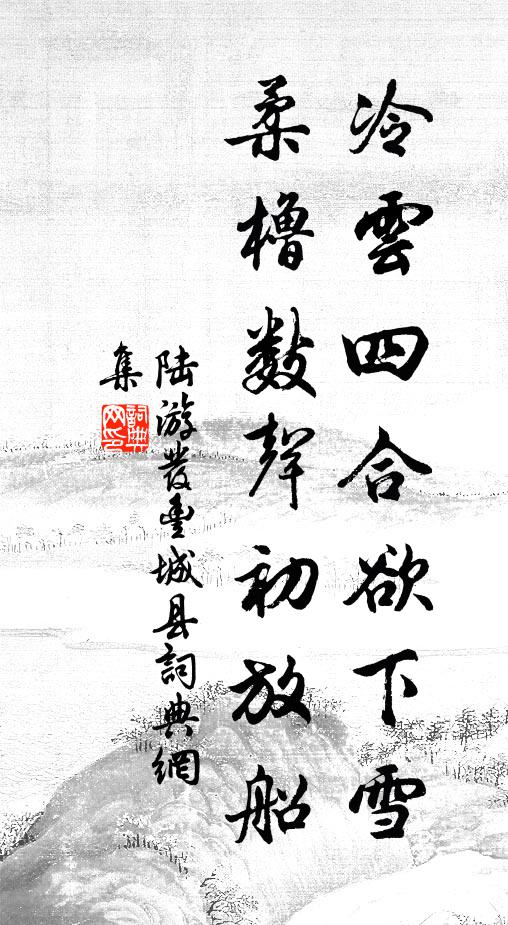 冷雲四合欲下雪
柔櫓数聲初放船
陆游發豊城县詞典網
集
詞典
网印